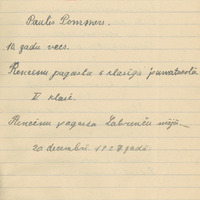 Paulis Pommers.
12 gadu vecs.
Rencēnu pagasta 6 klasīgā pamatskola
II klasē.
Rencēnu pagasta Labrenču mājā
20 decembrī 1928 gadā.